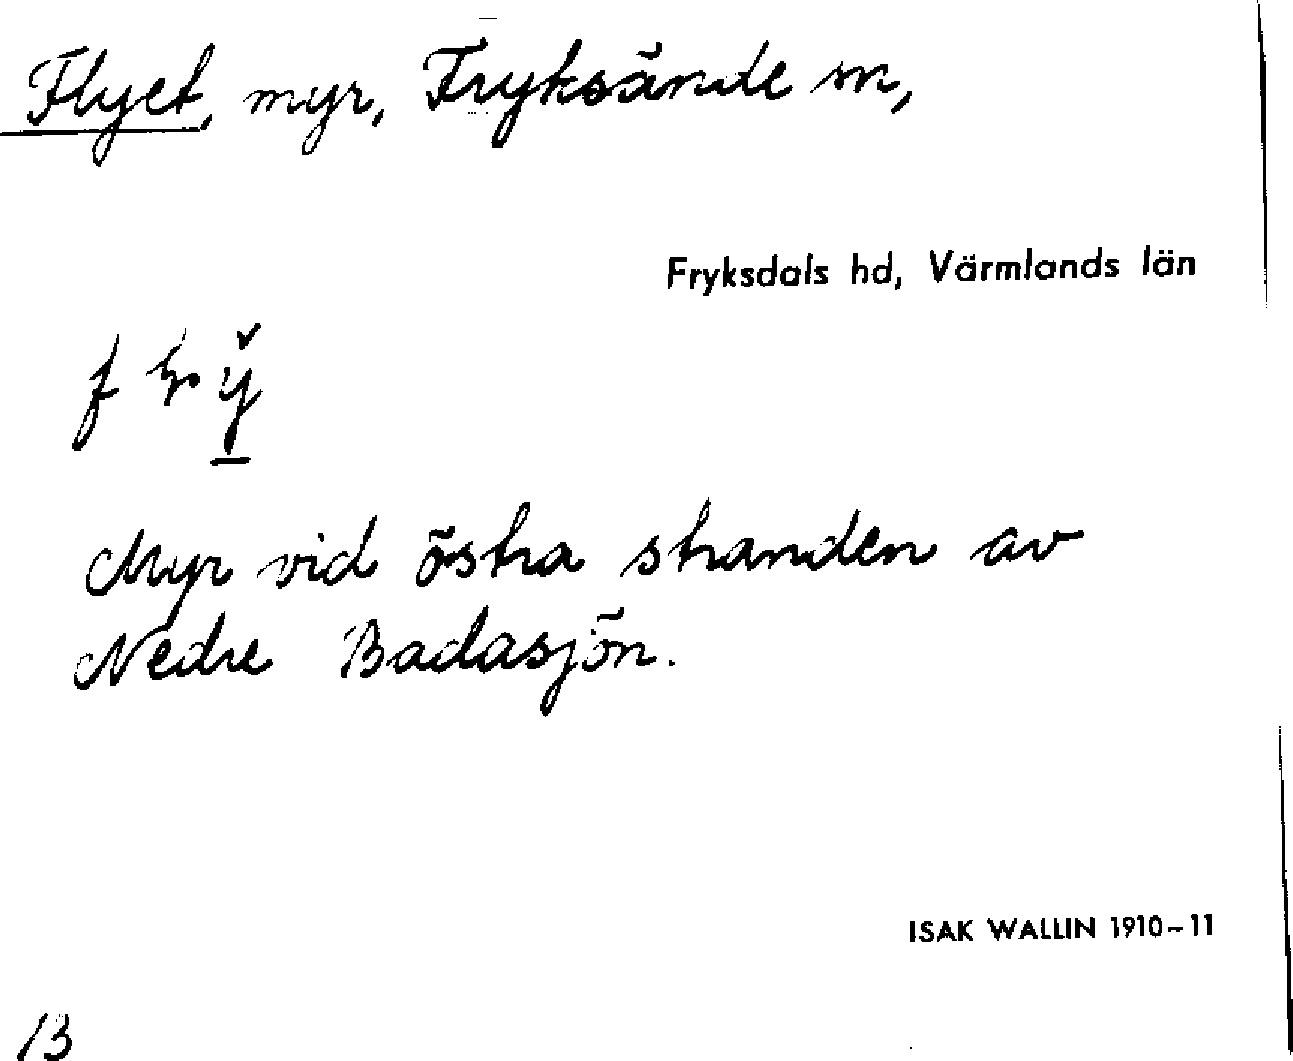 Flyet, myr, Fryksände sn,
Fryksdals hd, Värmlands län
Myr vid östra stranden av
Nedre Badasjön.
ISAK WALLIN 1910-11
13